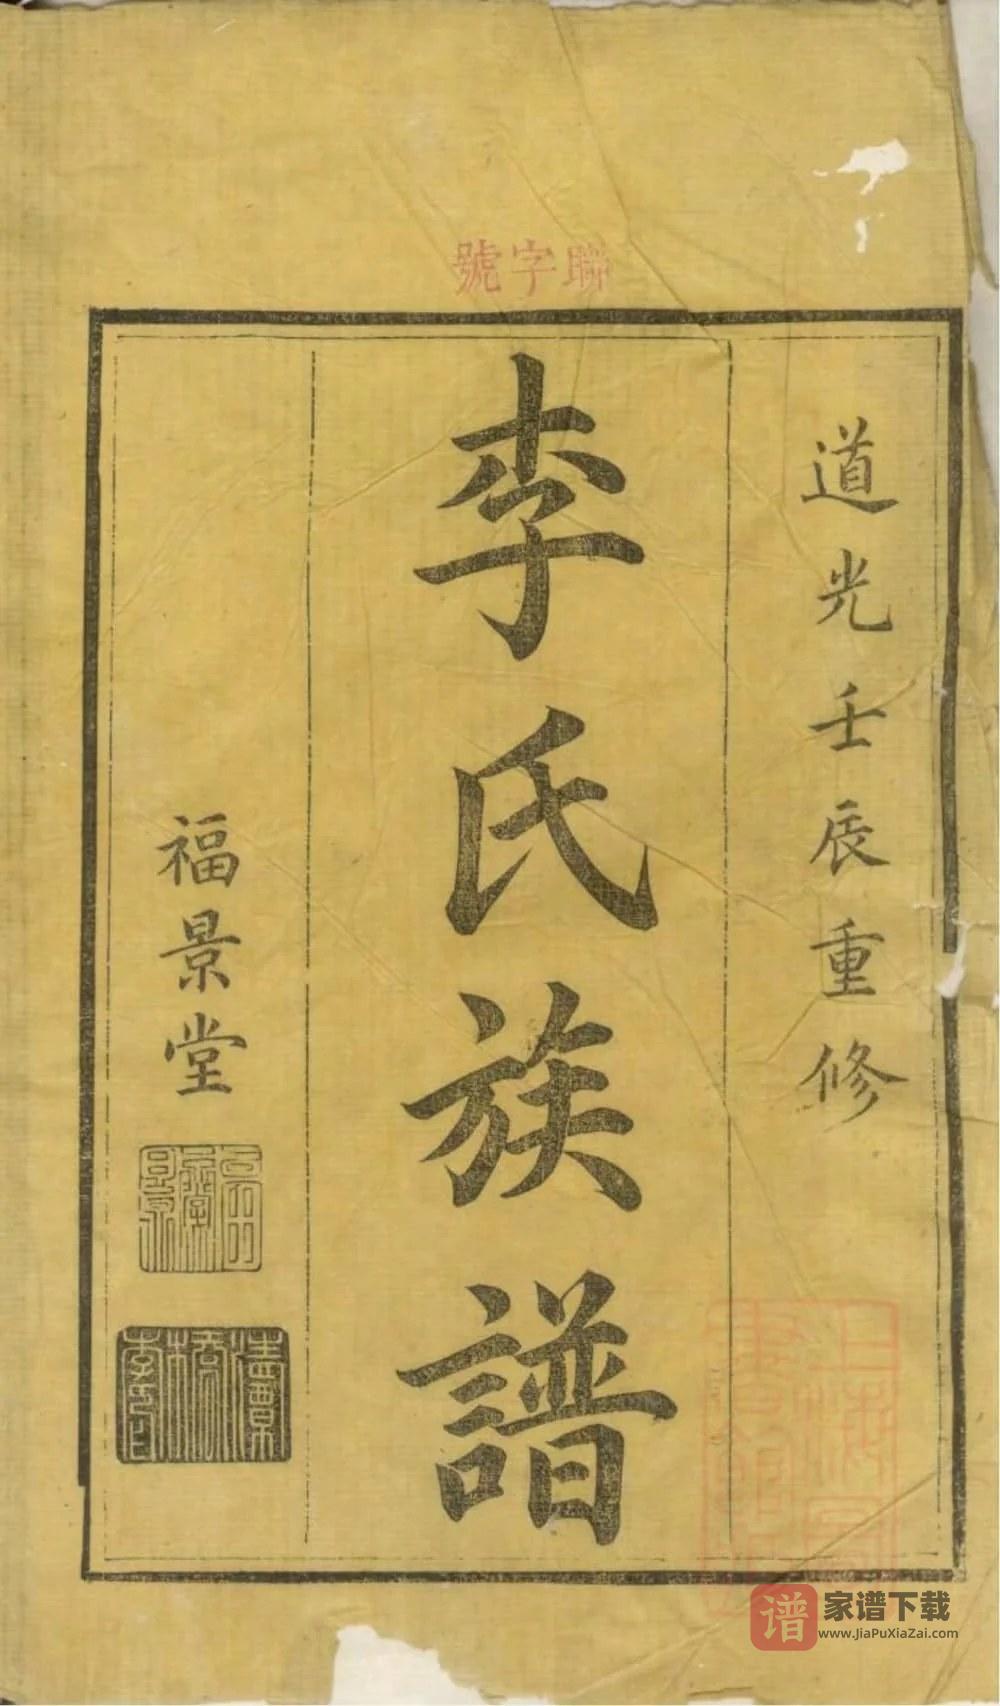 聯字號
道光壬辰重修
李氏族譜
福景堂
福景堂
谱 家谱下载
www.JiaPuXiaZai.com